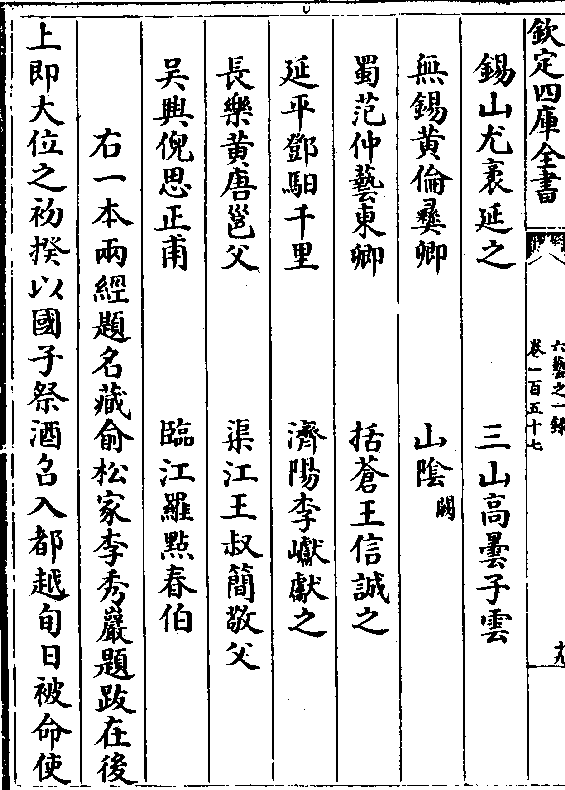 欽定四庫全書
六藝之一録
卷一百五十七
錫山尤袤延之 三山高曇子雲
無錫黄倫彞卿 山隂闕
蜀范仲藝東卿 括蒼王信誠之
延平鄧馹千里 濟陽李巘獻之
長樂黄唐邕父 渠江王叔簡敬父
吴興倪思正甫 臨江羅點春伯
右一本兩經題名藏俞松家李秀巖題跋在後
上即大位之初揆以國子祭酒名入都越旬日被命使